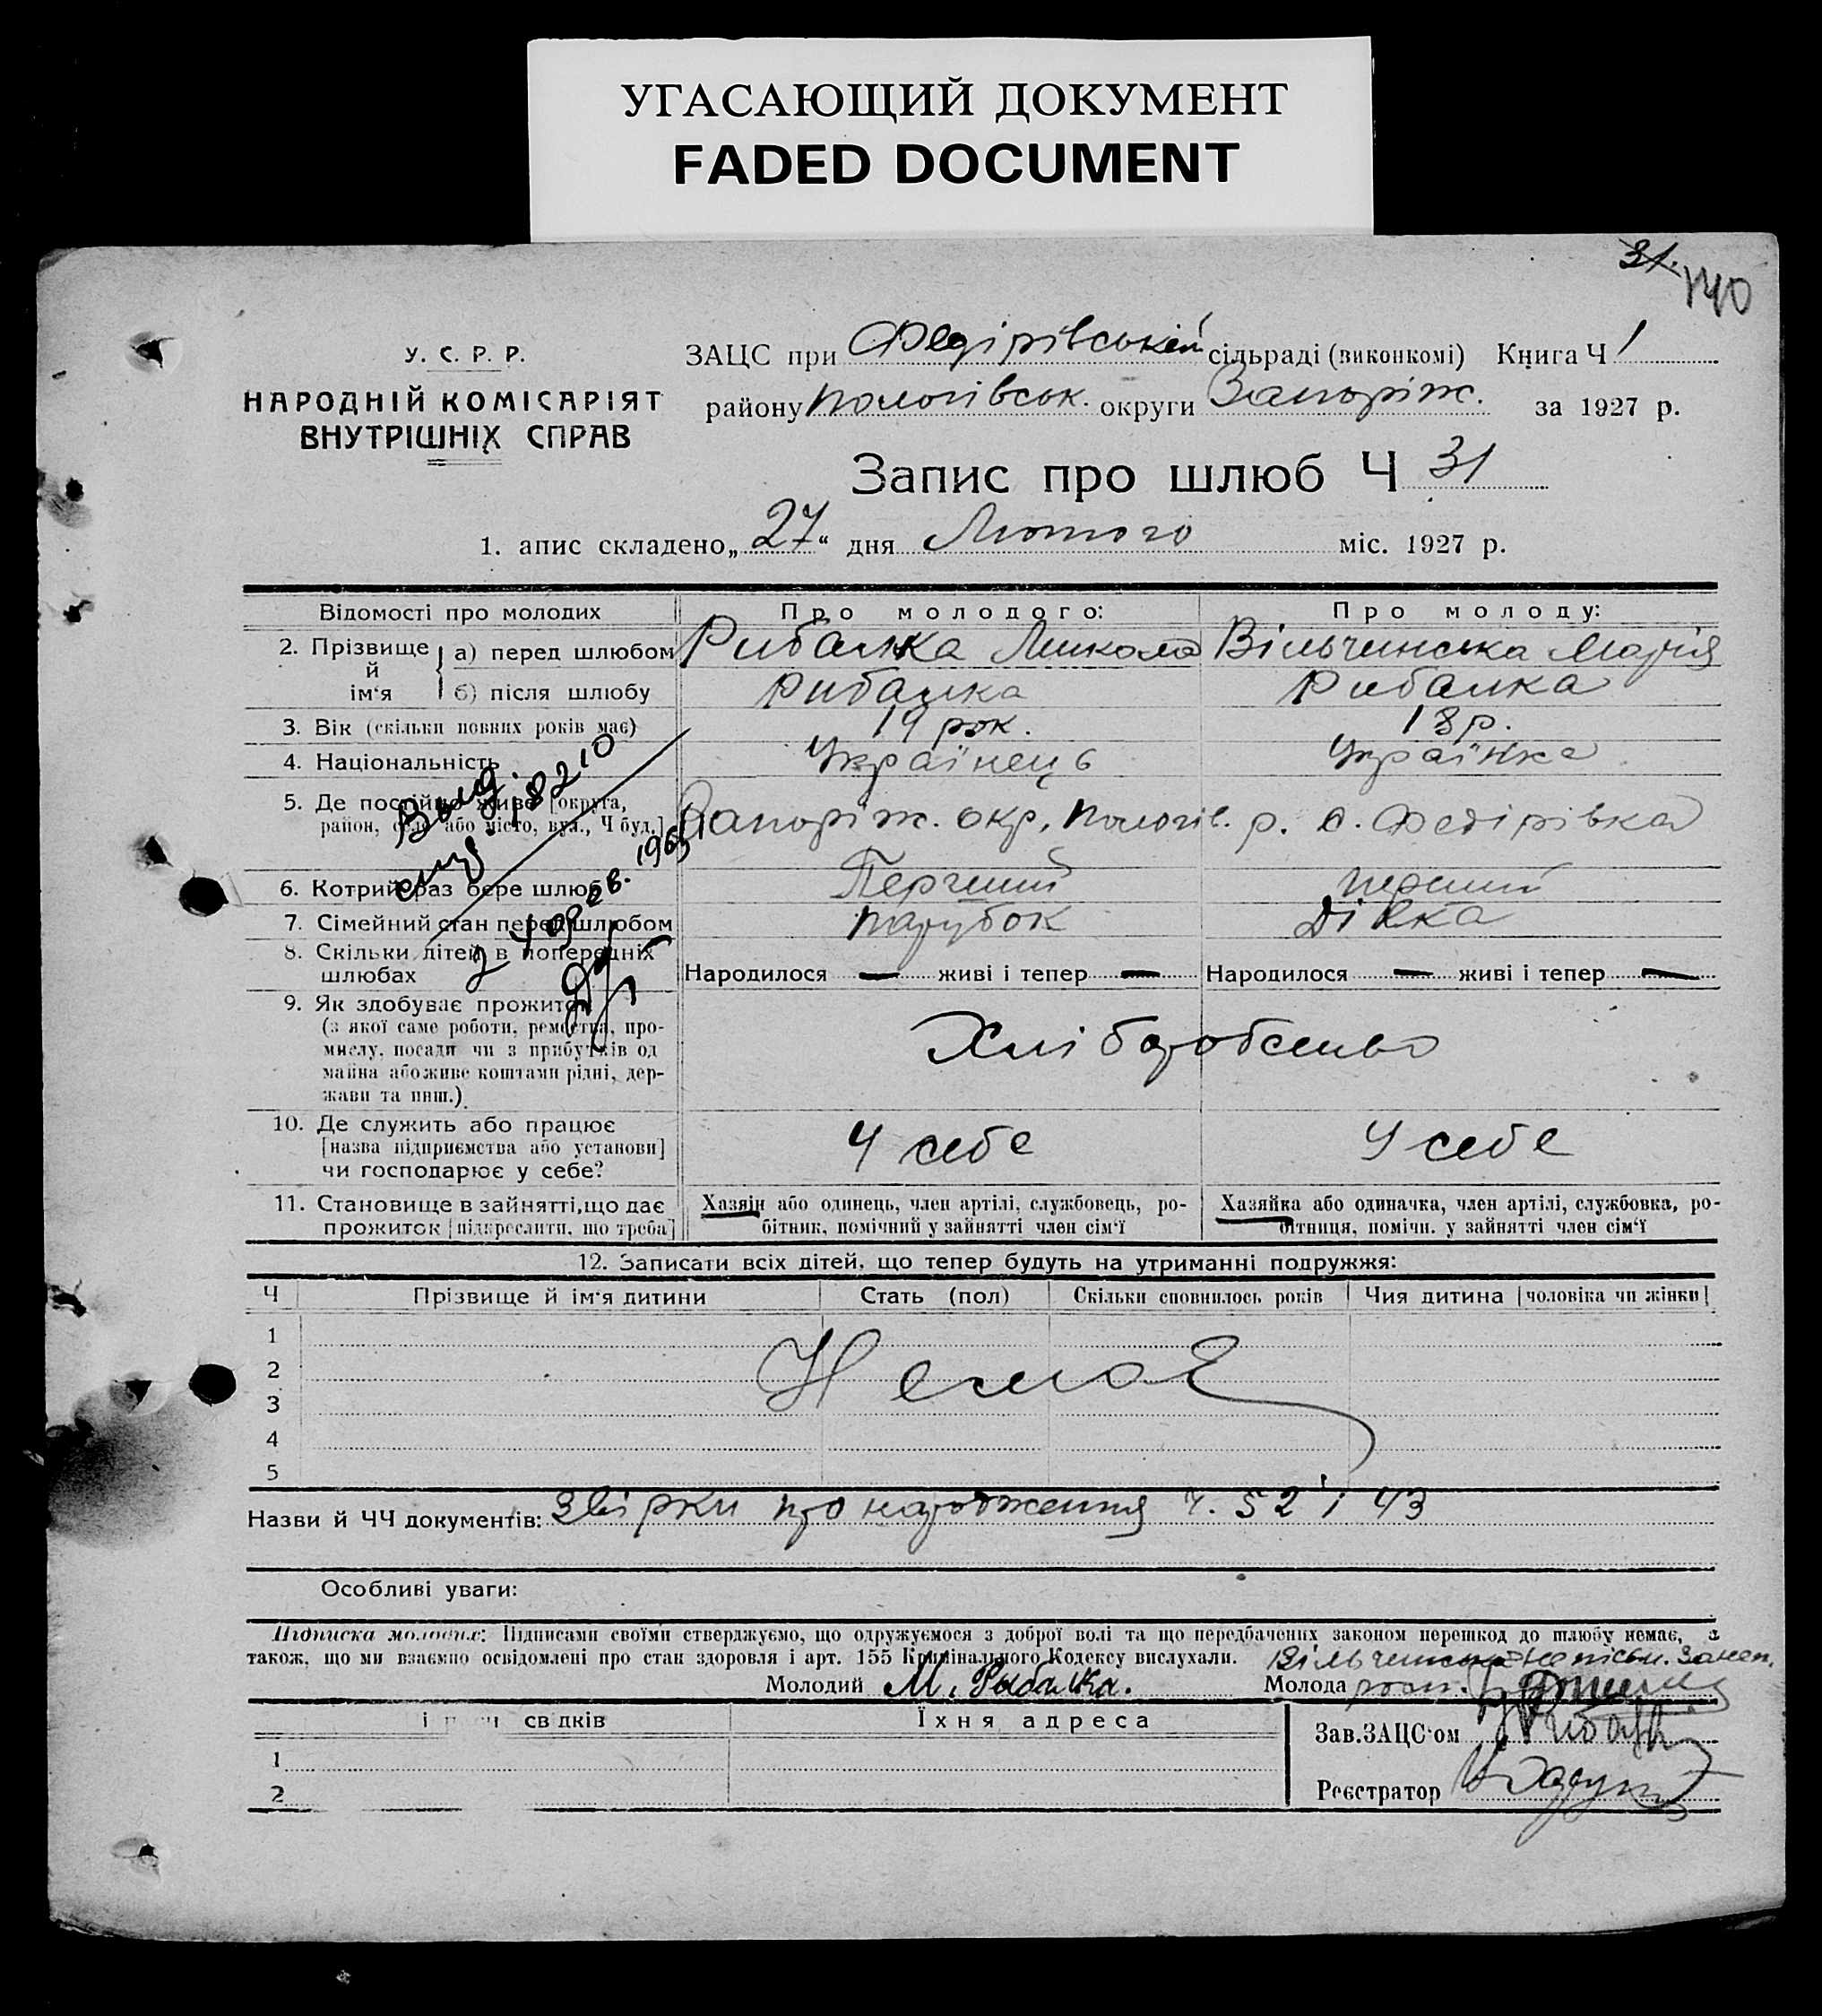 УГАСАЮЩИЙ ДОКУМЕНТ
FADED DOCUMENT
31.
140
У. С. Р. Р.
НАРОДНІЙ КОМІСАРІЯТ
ВНУТРІШНІХ СПРАВ
ЗАЦС при Федірівській сільраді (виконкомі) Книга Ч 1
району Пологівськ. округи Запоріж. за 1927 р.
Запис про шлюб Ч 31
1. апис складено „27“ дня Лютого міс. 1927 р.
Відомості про молодих Про молодого: Про молоду:
2. Прізвище й ім‘я а) перед шлюбом Рибалка Микола Вільчинська Марія
б) після шлюбу Рибалка Рибалка
3. Вік (скільки повних років має) 19 рок. 18 р.
4. Національність Українець Українка
5. Де постійно живе [округа,
район, село або місто, вул., Ч буд.] Запоріж. окр, Пологів. р. с. Федірівка
6. Котрий раз бере шлюб Перший перший
7. Сімейний стан перед шлюбом парубок дівка
8. Скільки дітей в попередніх
шлюбах Народилося — живі і тепер — Народилося — живі і тепер —
9. Як здобуває прожиток
(з якої саме роботи, ремества, про-
мислу, посади чи з прибутків од
майна або живе коштами рідні, дер-
жави та инш.)
Хліборобство
10. Де служить або працює
[назва підприємства або установи]
чи господарює у себе?
У себе У себе
11. Становище в зайнятті, що дає
прожиток [підкреслити, що треба]
Хазяїн або одинець, член артілі, службовець, ро-
бітник, помічний у зайнятті член сім‘ї
Хазяйка або одиначка, член артілі, службовка, ро-
бітниця, помічн. у зайнятті член сім‘ї
Выд.
2 1965
12. Записати всіх дітей, що тепер будуть на утриманні подружжя:
Ч Прізвище й ім‘я дитини Стать (пол) Скільки сповнилось років Чия дитина [чоловіка чи жінки]
1
2
3
4
5
Немає
Назви й ЧЧ документів: Звірки про народження ч. 52 і 43
Особливі уваги:
Підписка молодих: Підписами своїми стверджуємо, що одружуємося з доброї волі та що передбачених законом перешкод до шлюбу немає, а
також, що ми взаємно освідомлені про стан здоровля і арт. 155 Кримінального Кодексу вислухали. Вільчинська
Молодий М. Рыбалка. Молода
св дків Їхня адреса
1
2
Зав. ЗАЦС‘ом
Реєстратор